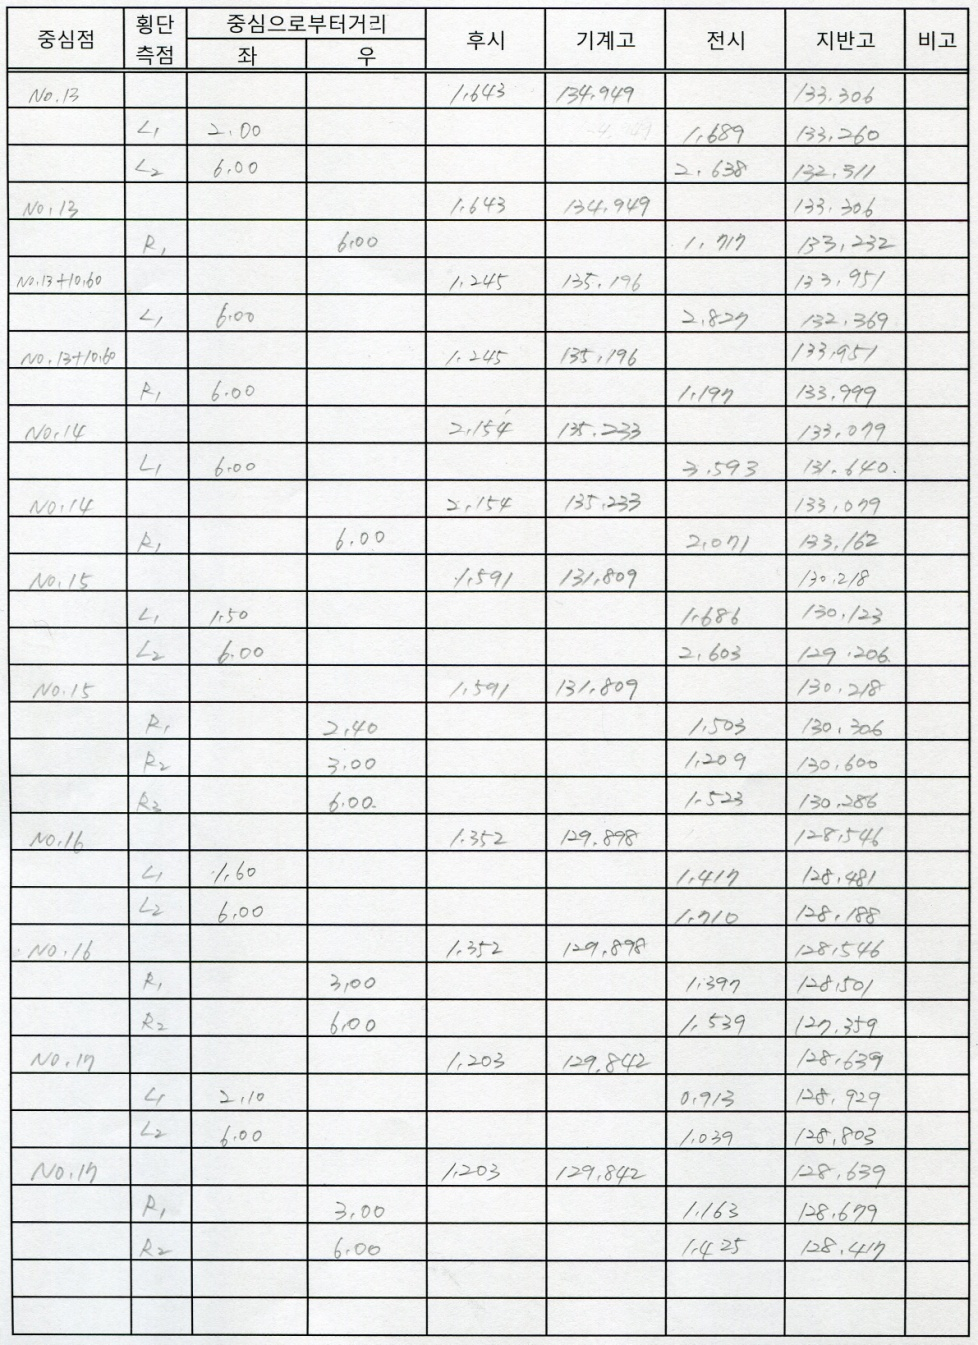 중심점 횡단측점 중심으로부터거리 후시 기계고 전시 지반고 비고
좌 우
No.13 1.643 134.949 133.306
L1 2.00 1.689 133.260
L2 6.00 2.638 132.311
No.13 1.643 134.949 133.306
R1 6.00 1.717 133.232
No.13+10.60 1.245 135.196 133.951
L1 6.00 2.827 132.369
No.13+10.60 1.245 135.196 133.951
R1 6.00 1.197 133.999
No.14 2.154 135.233 133.079
L1 6.00 3.593 131.640
No.14 2.154 135.233 133.079
R1 6.00 2.071 133.162
No.15 1.591 131.809 130.218
L1 1.50 1.686 130.123
L2 6.00 2.603 129.206
No.15 1.591 131.809 130.218
R1 2.40 1.503 130.306
R2 3.00 1.209 130.600
R3 6.00 1.523 130.286
No.16 1.352 129.898 128.546
L1 1.60 1.417 128.481
L2 6.00 1.710 128.188
No.16 1.352 129.898 128.546
R1 3.00 1.397 128.501
R2 6.00 1.539 127.359
No.17 1.203 129.842 128.639
L1 2.10 0.913 128.929
L2 6.00 1.039 128.803
No.17 1.203 129.842 128.639
R1 3.00 1.163 128.679
R2 6.00 1.425 128.417